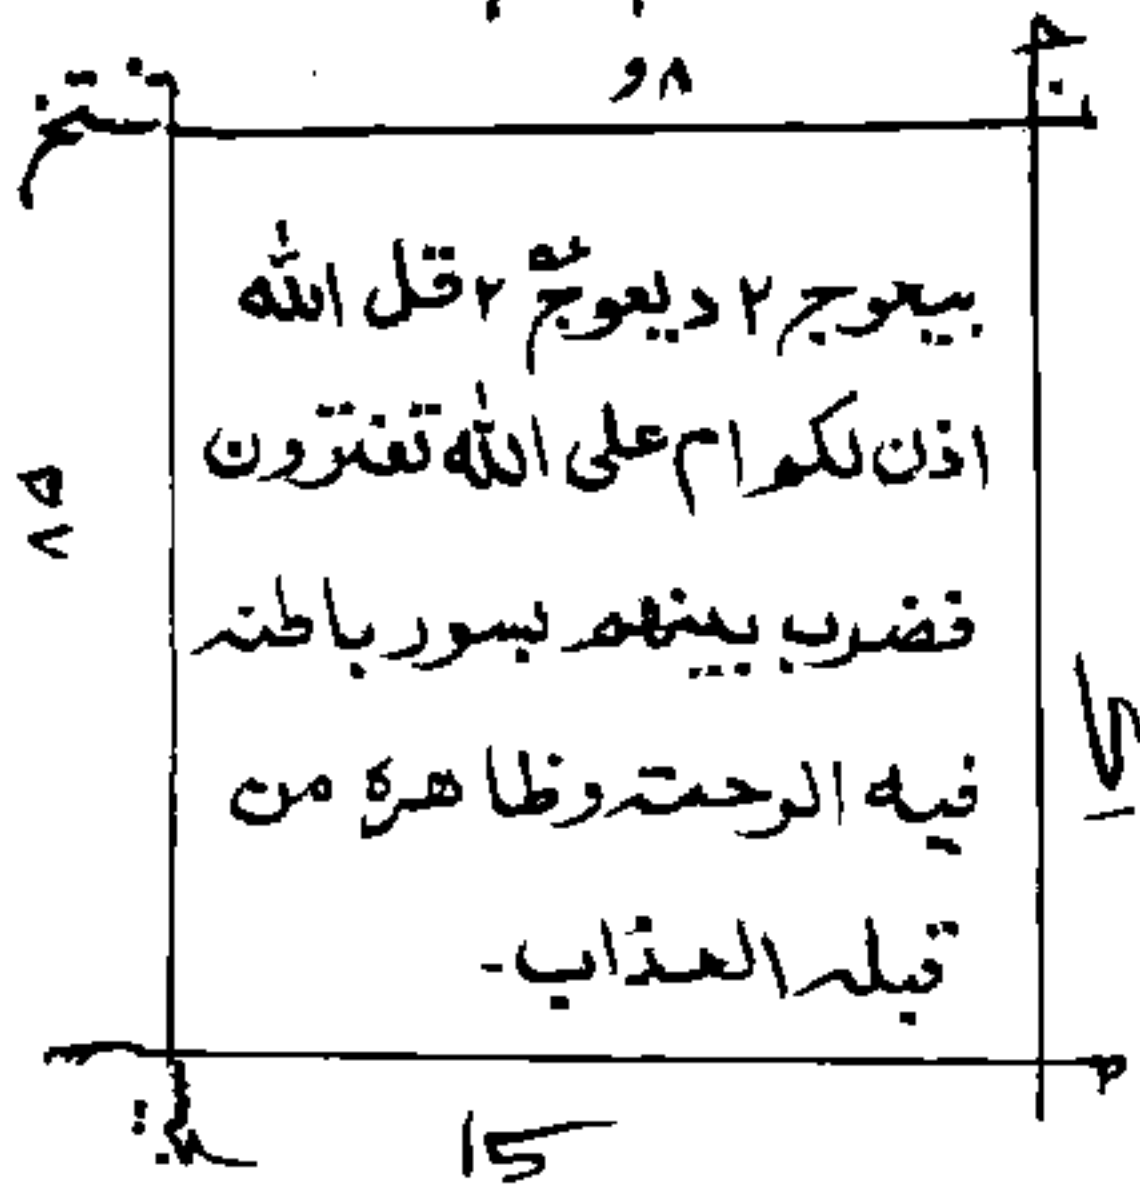 ٨ و
بيعوج ٢ ديعوج ٢ قل الله
اذن لكم ام على الله تفترون
فضرب بينهم بسور باطنه
فيه الرحمته وظاهره من
قبله العذاب-